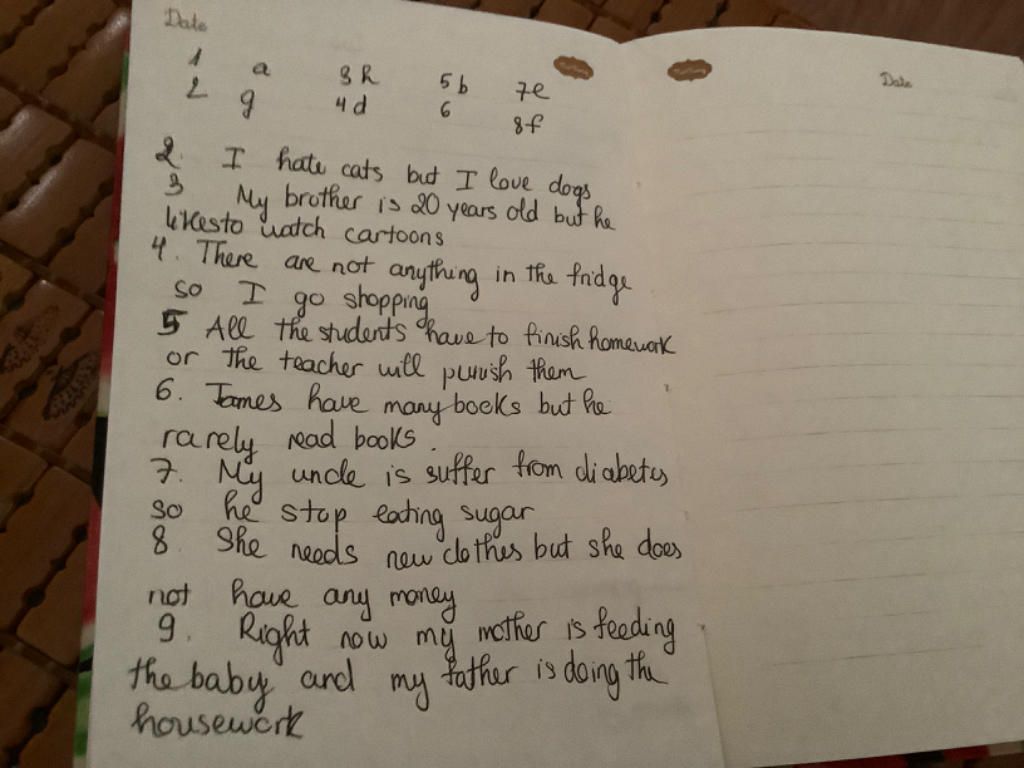 Date
1 a 3 h 5 b 7 e
2 g 4 d 6 8 f
2. I hate cats but I love dogs
3 My brother is 20 years old but he
likes to watch cartoons
4. There are not anything in the fridge
so I go shopping
5 All the students have to finish homework
or the teacher will punish them
6. James have many books but he
rarely read books.
7. My uncle is suffer from diabetes
so he stop eating sugar
8 She needs new clothes but she does
not have any money
9. Right now my mother is feeding
the baby and my father is doing the
housework
Date